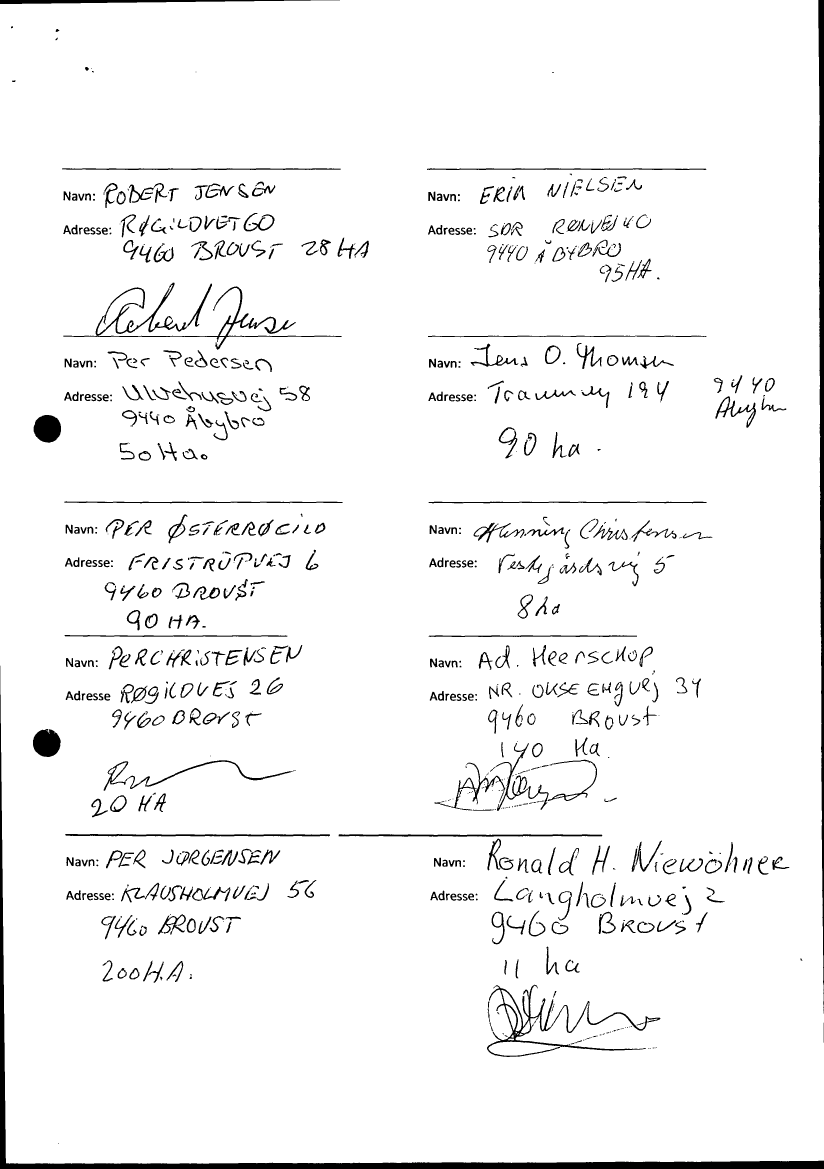 Navn: ROBERT JENSEN
Adresse: RØGILDVEJ 60
9460 BROVST 28 HA
Navn: ERIK NIELSEN
Adresse: SDR RENVEJ 40
9440 ÅBYBRO
95 HA.
Robert Jensen
Navn: Per Pedersen
Adresse: Ulvehusvej 58
9440 Åbybro
50 Ha.
Navn: Jens O. Thomsen
Adresse: 194 9440
Åbybro
90 ha.
Navn: PER ØSTERRØGILD
Adresse: FRISTRUPVEJ 6
9460 BROVST
90 HA.
Navn: Henning Christensen
Adresse: Vestegårdsvej 5
8 ha
Navn: PER CHRISTENSEN
Adresse RØGILDVEJ 26
9460 BROVST
20 HA
Navn: Ad. Heerschop
Adresse: NR. OKSE ENGVEJ 34
9460 BROVST
140 Ha
Navn: PER JØRGENSEN
Adresse: KLAUSHOLMVEJ 56
9460 BROVST
200 H.A.
Navn: Ronald H. Niewöhner
Adresse: Langholmvej 2
9460 BROVST
11 ha